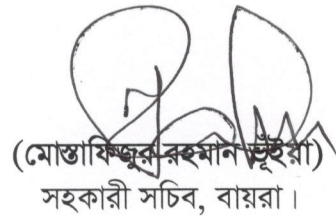 (মোস্তাফিজুর রহমান ভূঁইয়া)
সহকারী সচিব, বায়রা।